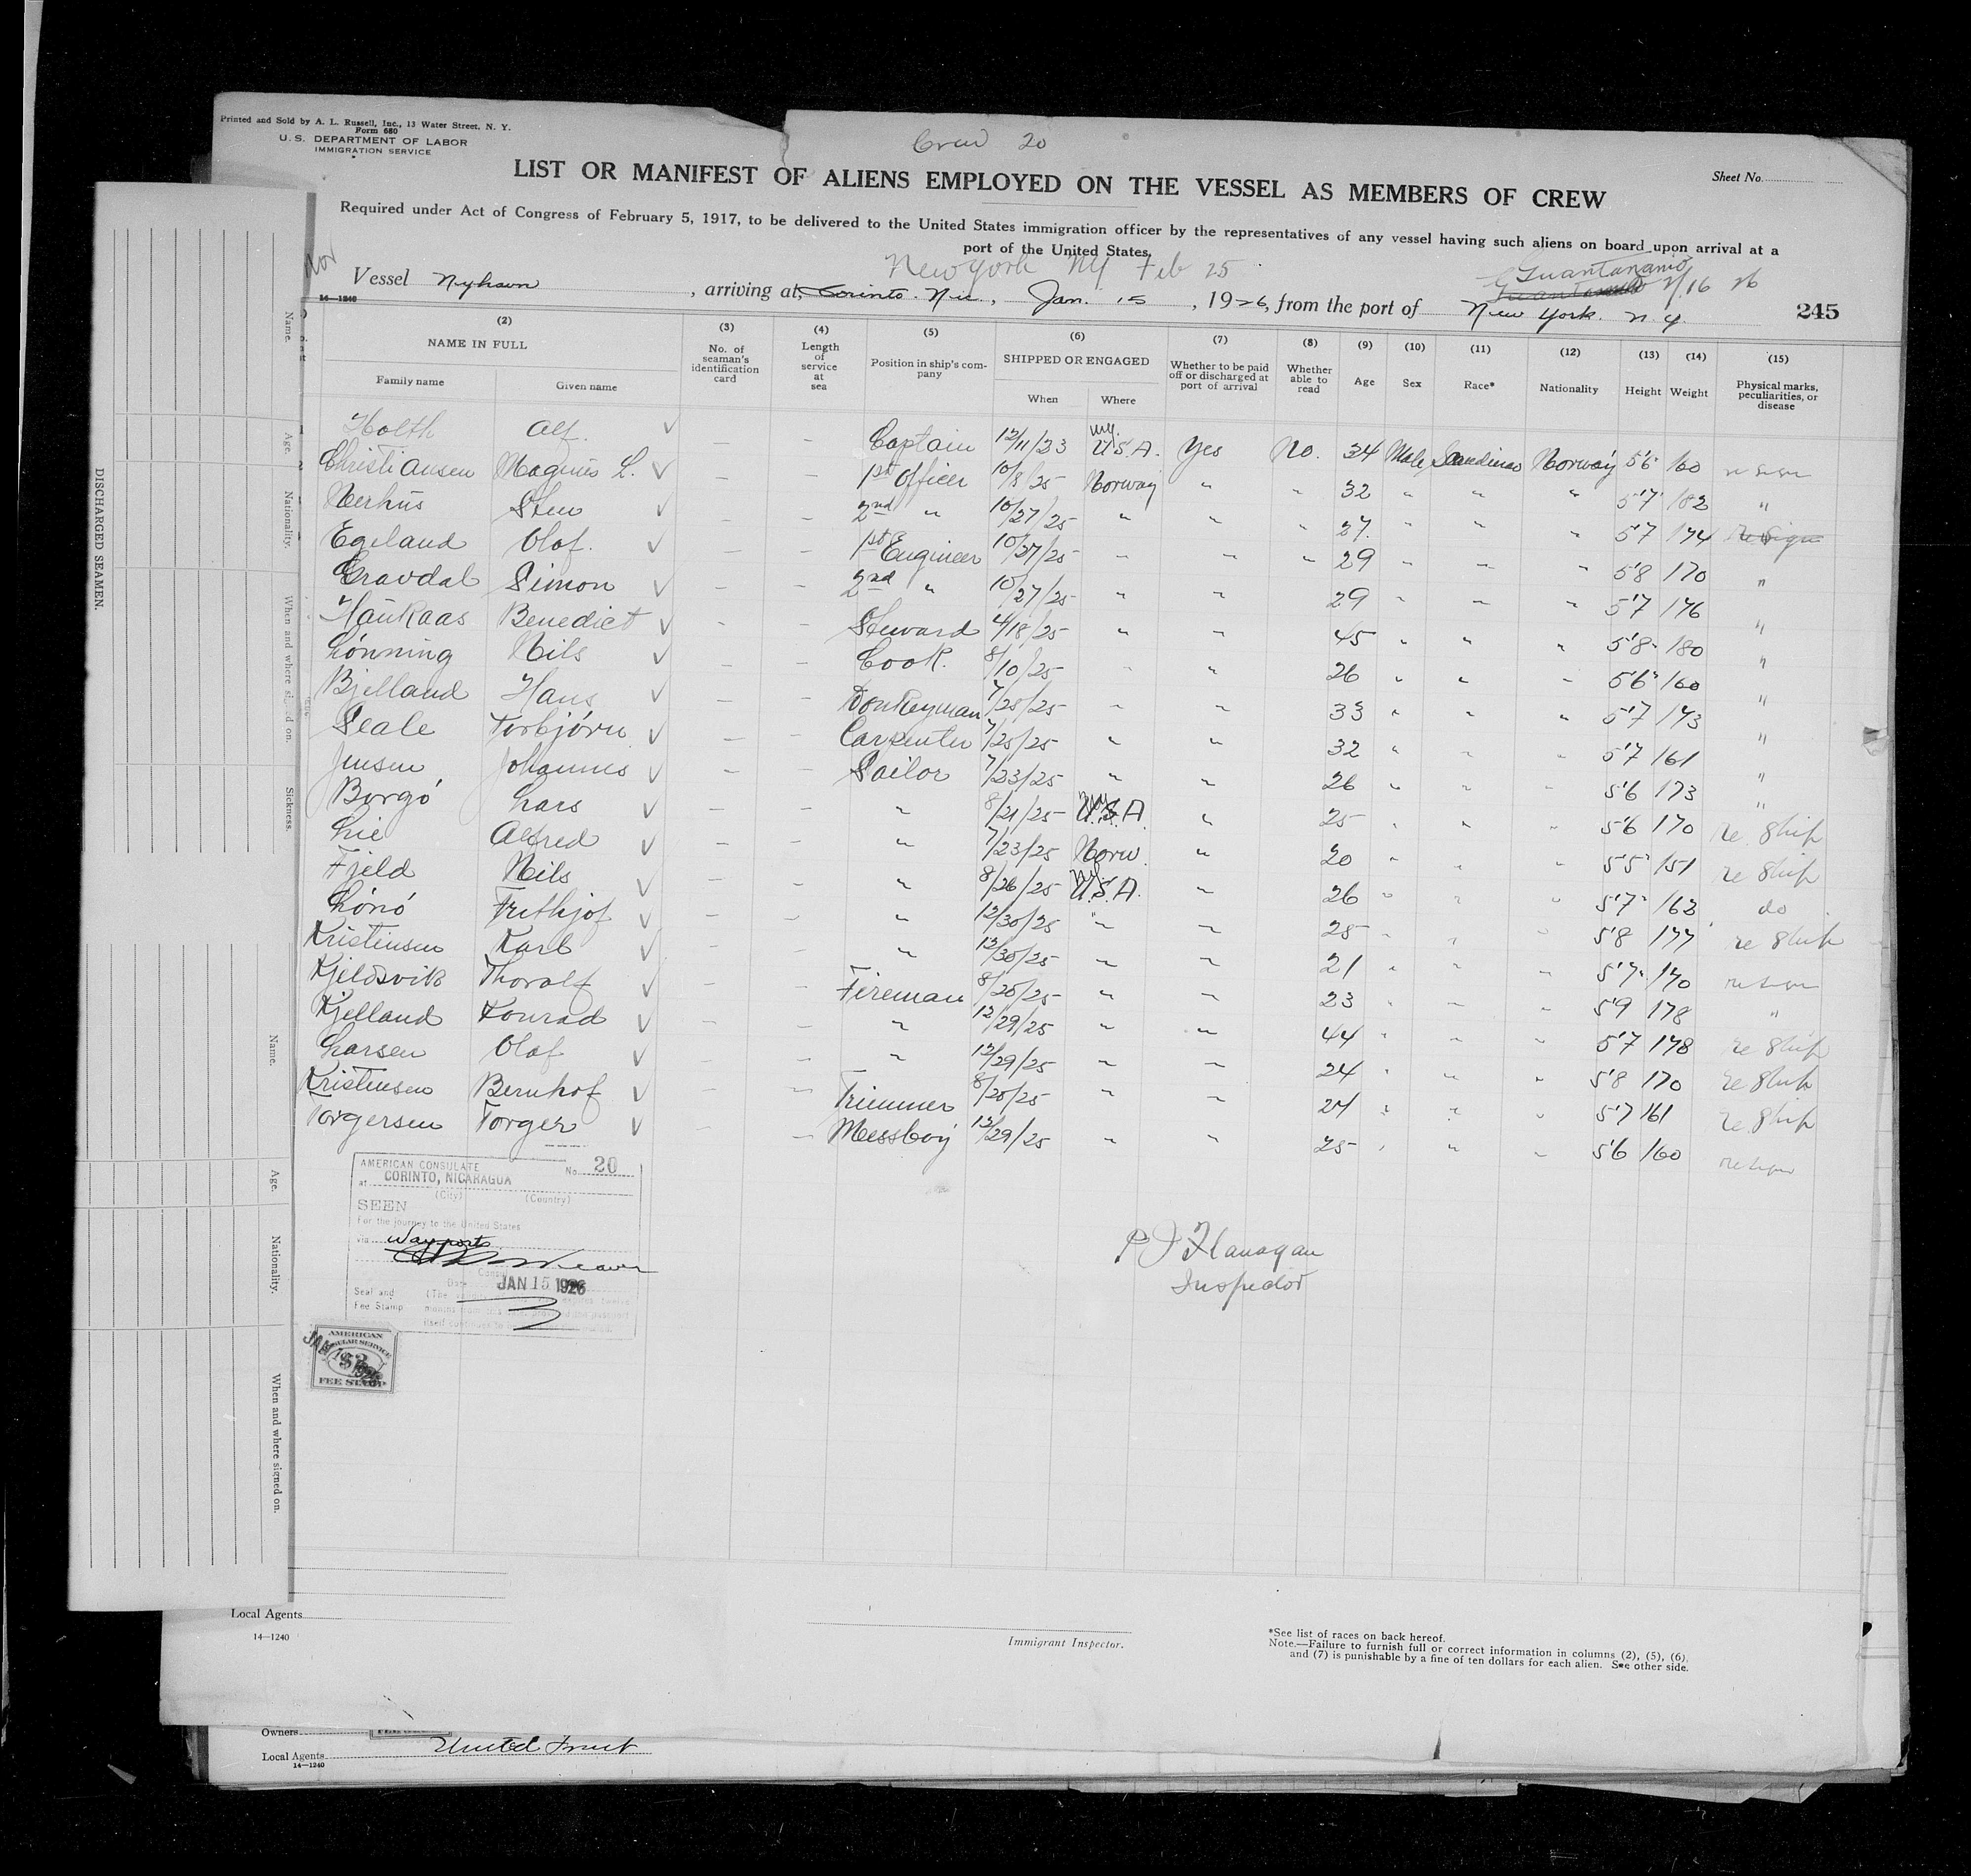 Printed and Sold by A. L. Russell, Inc., 13 Water Street, N. Y.
Form 680
U. S. DEPARTMENT OF LABOR
IMMIGRATION SERVICE
Crew 20
LIST OR MANIFEST OF ALIENS EMPLOYED ON THE VESSEL AS MEMBERS OF CREW
Sheet No.
Required under Act of Congress of February 5, 1917, to be delivered to the United States immigration officer by the representatives of any vessel having such aliens on board upon arrival at a
port of the United States
Nor
New York NY Feb 25
Guantanamo 2/16 26
Vessel Nyhavn, arriving at Corinto. Nic., Jan. 15, 1926, from the port of New York. N. Y.
14—1240
245
(2) (3) (4) (5) (6) (7) (8) (9) (10) (11) (12) (13) (14) (15)
NAME IN FULL No. of seaman's identification card Length of service at sea Position in ship's company SHIPPED OR ENGAGED Whether to be paid off or discharged at port of arrival Whether able to read Age Sex Race* Nationality Height Weight Physical marks, peculiarities, or disease
Family name Given name When Where
Holth Alf. ✓ — — Captain 12/11/23 N.Y. U.S.A. Yes No. 34 Male Norway 5'6 160 resign
Christiansen Magnus L. ✓ — — 1st Officer 10/8/25 Norway " " 32 " " " 5'7 182 "
Nerhus Sten ✓ — — 2nd " 10/27/25 " " " 27. " " " 5'7 174 resign
Egeland Olof. ✓ — — 1st Engineer 10/27/25 " " " 29 " " " 5'8 170 "
Gravdal Simon ✓ — — 2nd " 10/27/25 " " 29 " " " 5'7 176 "
Haukaas Benedict ✓ — — Steward 4/18/25 " " 45 " " " 5'8 180 "
Lónning Nils ✓ — — Cook. 8/10/25 " " 26 " " " 5'6 160 "
Bjelland Hans ✓ — Donkeyman 7/25/25 " " 33 " " " 5'7 173 "
Seale Torbjórn ✓ — — Carpenter 7/25/25 " " 32 " " " 5'7 161 "
Jensen Johannes ✓ — — Sailor 7/23/25 " " 26 " " " 5'6 173 "
Borgó Lars ✓ — — " 8/21/25 N.Y. U.S.A. " 25 " " " 5'6 170 re Ship
Lie Alfred ✓ — — " 7/23/25 Norw. " 20 " " " 5'5 151 re Ship
Fjeld Nils ✓ — — " 8/26/25 N.Y. U.S.A. " 26 " " " 5'7 163 do
Lónó Frithjof ✓ — — " 12/30/25 " " 25 " " " 5'8 177 re Ship
Kristensen Karl ✓ — — " 12/30/25 " " 21 " " " 5'7 170 resign
Kjeldsvik Thoralf ✓ — — Fireman 8/20/25 " " 23 " " " 5'9 178 "
Kjelland Konrad ✓ — — " 12/29/25 " " 44 " " " 5'7 178 re Ship
Larsen Olaf ✓ — — " 12/29/25 " " 24 " " " 5'8 170 re Ship
Kristensen Bernhof ✓ — — Trimmer 8/20/25 " " 24 " " " 5'7 161 re Ship
Torgersen Torger ✓ — — Messboy 12/29/25 " " 25 " " " 5'6 160 resign
AMERICAN CONSULATE No. 20
at CORINTO, NICARAGUA
(City) (Country)
SEEN
For the journey to the United States
via Wayports
Weaver
Date JAN 15 1926
Seal and
Fee Stamp
AMERICAN
CONSULAR SERVICE
FEE STAMP
P J Flanagan
Inspector
DISCHARGED SEAMEN.
Name.
Age.
Nationality.
When and where signed on.
Sickness.
Name.
Age.
Nationality.
When and where signed on.
Local Agents
14—1240
Immigrant Inspector.
*See list of races on back hereof.
Note.—Failure to furnish full or correct information in columns (2), (5), (6),
and (7) is punishable by a fine of ten dollars for each alien. See other side.
Owners
Local Agents United Fruit
14—1240